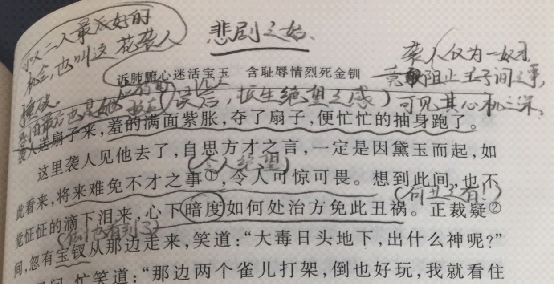 悲剧之始
以二人最美好的
机会,也叫这花袭人
袭人仅为一奴才
诉肺腑心迷活宝玉 含耻辱情烈死金钏
竟敢阻止主子间之事,
读后,恨生绝望之感
可见其心机之深
袭人送扇子来,羞的满面紫胀,夺了扇子,便忙忙的抽身跑了。
这里袭人见他去了,自思方才之言,一定是因黛玉而起,如
此看来,将来难免不才之事①,令人可惊可畏。想到此间,也不
觉怔怔的滴下泪来,心下暗度如何处治方免此丑祸。正裁疑②
间,忽有宝钗从那边走来,笑道:“大毒日头地下,出什么神呢?”
忙笑道:“那边两个雀儿打架,倒也好玩,我就看住